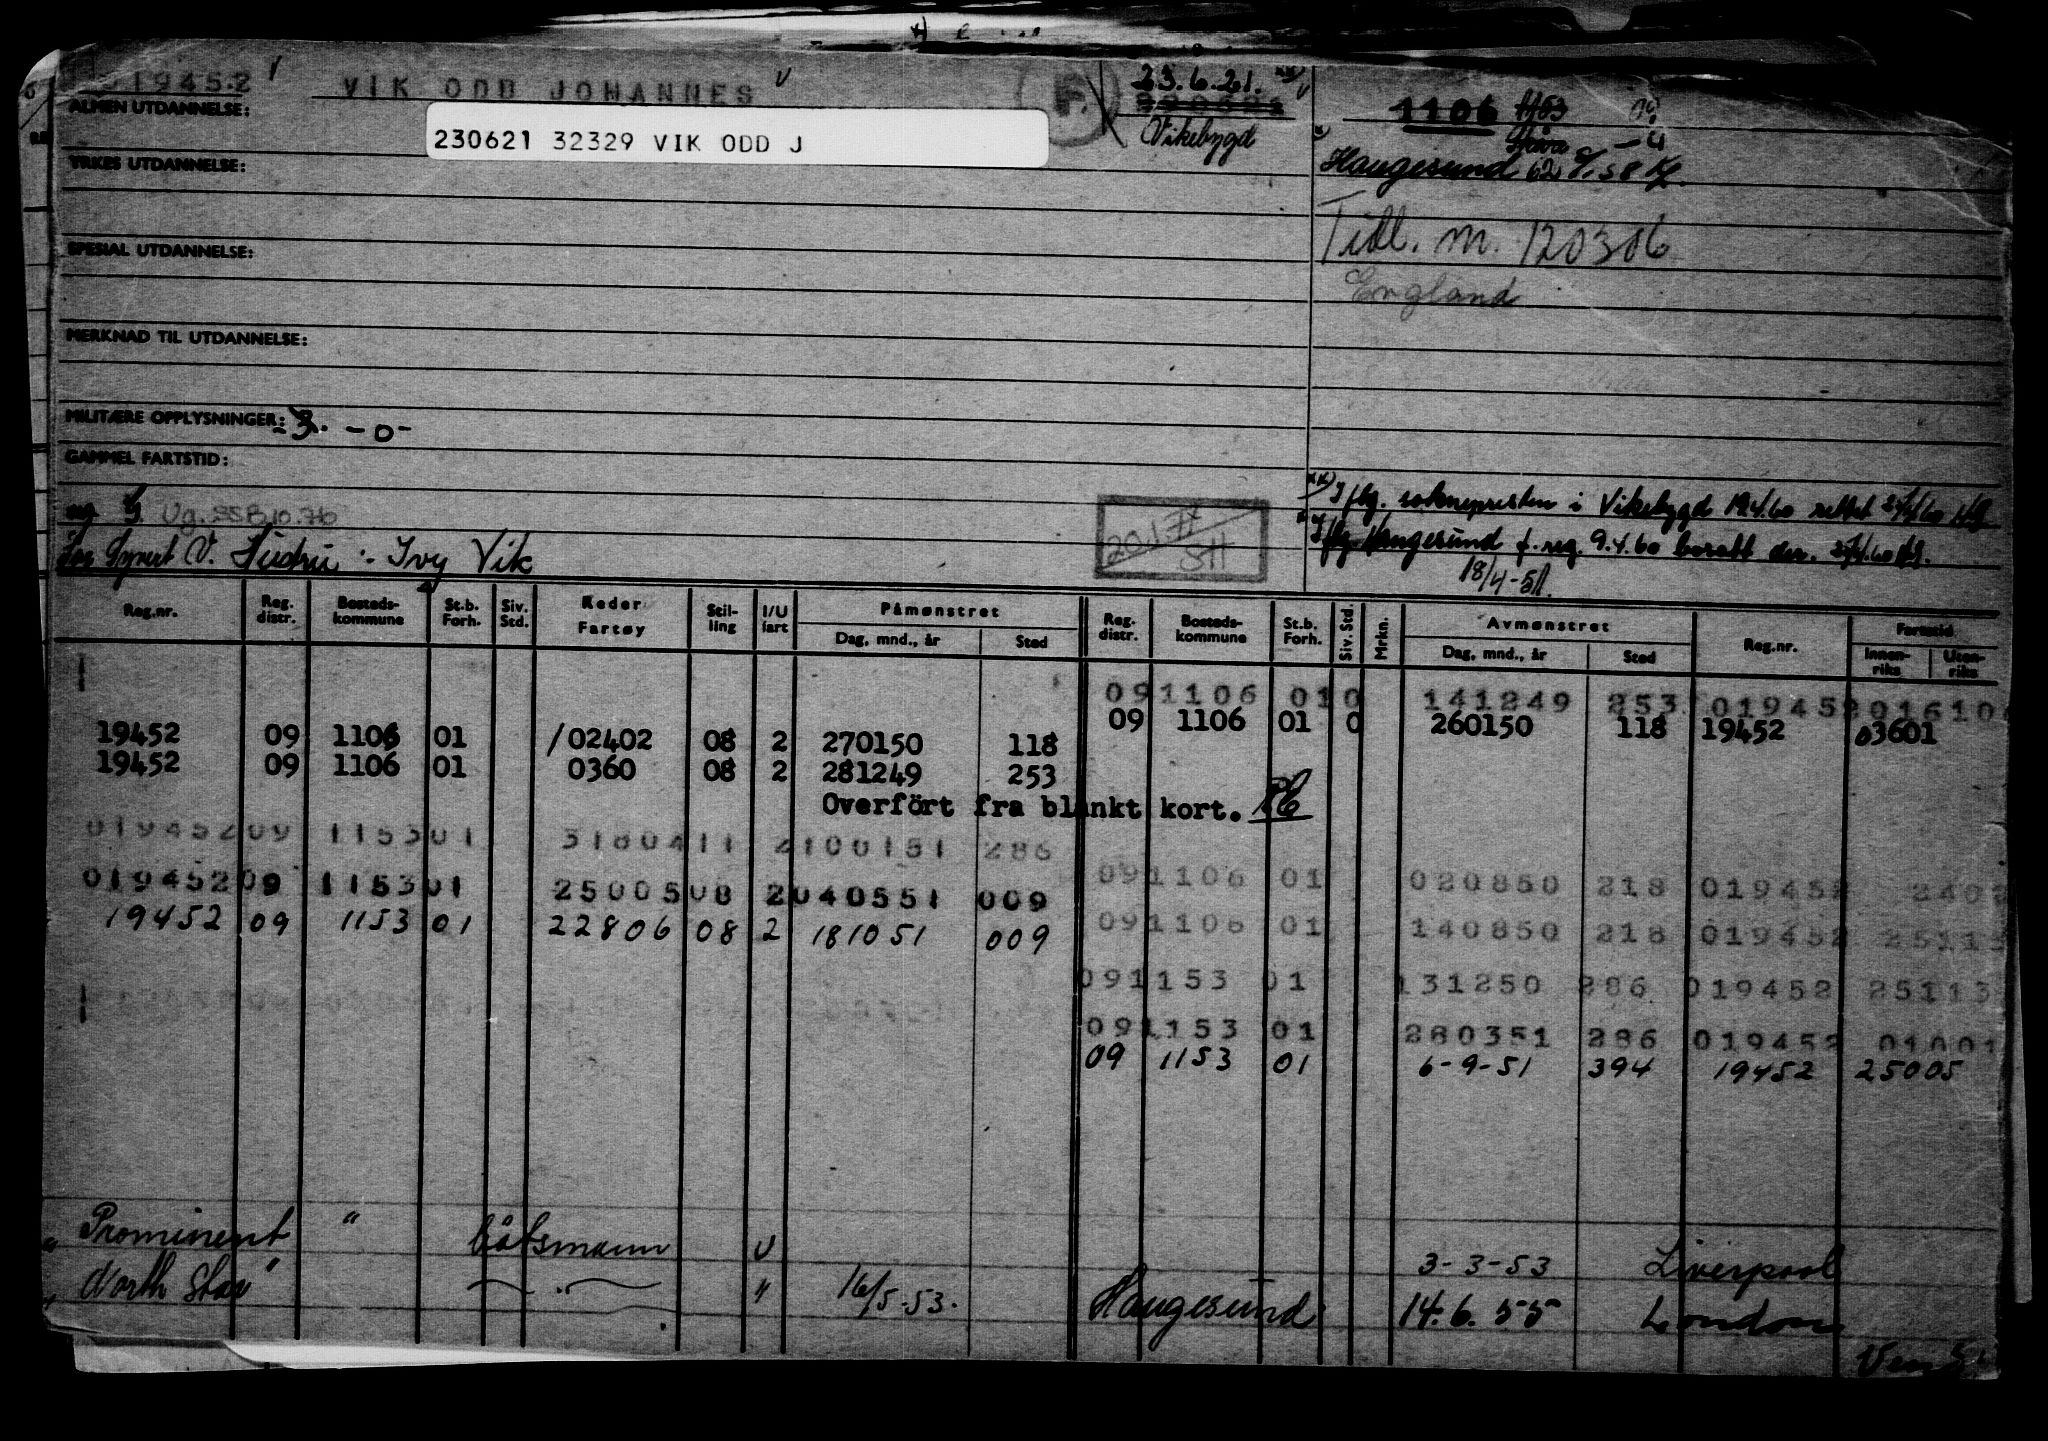 19452 VIK ODD JOHANNES F. 23.6.21. xx) 1106 1103
ALMEN UTDANNELSE: 230621 32329 VIK ODD J Vikebygd
Haugesund
YRKES UTDANNELSE:
Tidl. m. 120306
SPESIAL UTDANNELSE:
England
MERKNAD TIL UTDANNELSE:
MILITÆRE OPPLYSNINGER: -3. -0-
GAMMEL FARTSTID:
xx) Iflg. soknepresten i Vikebygd 19.4.60 rettet
Ug. SSB 10.76
20.1.77
SH
Iflg. Haugesund f. reg. 9.4.60 bosatt der.
V. Hustru :- Ivy Vik
18/4-51.
Reg.nr. Reg. distr. Bosteds-kommune St.b. Forh. Siv. Std. Reder Fartøy Stil-ling I/U fart Påmønstret Dag, mnd., år Sted Reg. distr. Bosteds-kommune St.b. Forh. Siv. Std. Mrkn. Avmønstret Dag, mnd., år Sted Reg.nr. Fartstid Innen-riks Uten-riks
09 1106 01 0 141249 253 019452
09 1106 01 0 260150 118 19452 03601
19452 09 1106 01 /02402 08 2 270150 118
19452 09 1106 01 0360 08 2 281249 253
Overfört fra blankt kort.
019452 09 1153 01 3180411 2 100151 286
09 1106 01 020850 218 019452 2402
019452 09 1153 01 25005 08 2 040551 009
09 1106 01 140850 218 019452 25113
19452 09 1153 01 22806 08 2 181051 009
09 1153 01 131250 286 019452 25113
09 1153 01 280351 286 019452 01001
09 1153 01 6-9-51 394 19452 25005
" Prominent " båtsmann U 3-3-53 Liverpool
" North Star " " 16/5-53. Haugesund 14.6.55 London